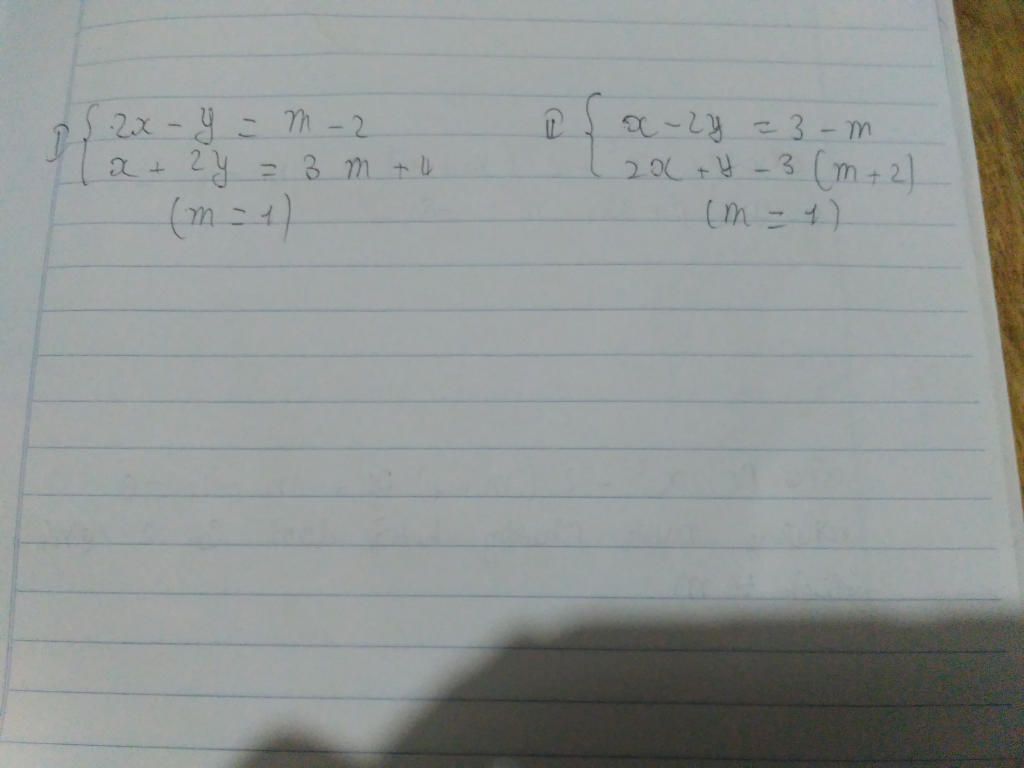 I) { 2x - y = m - 2
x + 2y = 3m + 4
(m = 1)
II { x - 2y = 3 - m
2x + y - 3 (m + 2)
(m = 1)